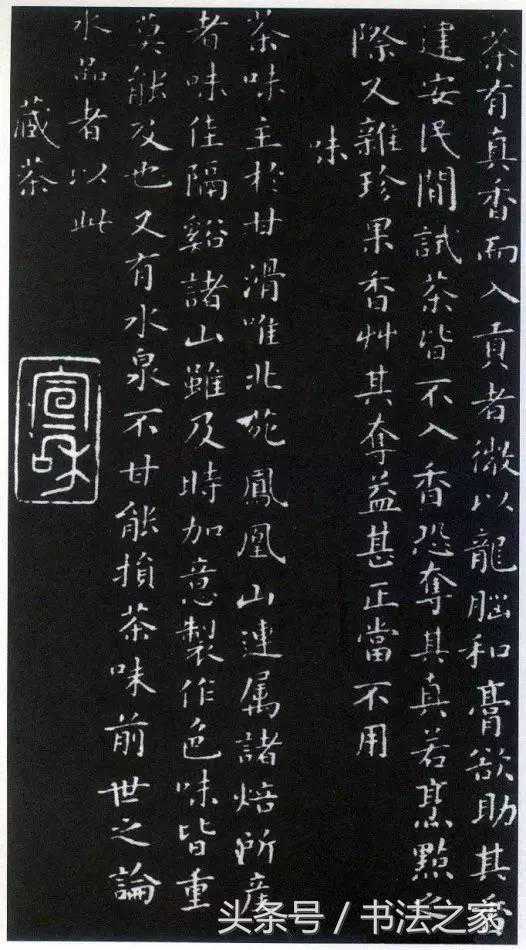 茶有真香而入貢者微以龍腦和膏欲助其香
建安民間試茶皆不入香恐奪其真若烹點之
際又雜珍果香艸其奪益甚正當不用
味
茶味主於甘滑唯北苑鳳凰山連属諸焙所產
者味佳隔谿諸山雖及時加意製作色味皆重
莫能及也又有水泉不甘能損茶味前世之論
水品者以此
藏茶
宣和
头条号 / 书法之家